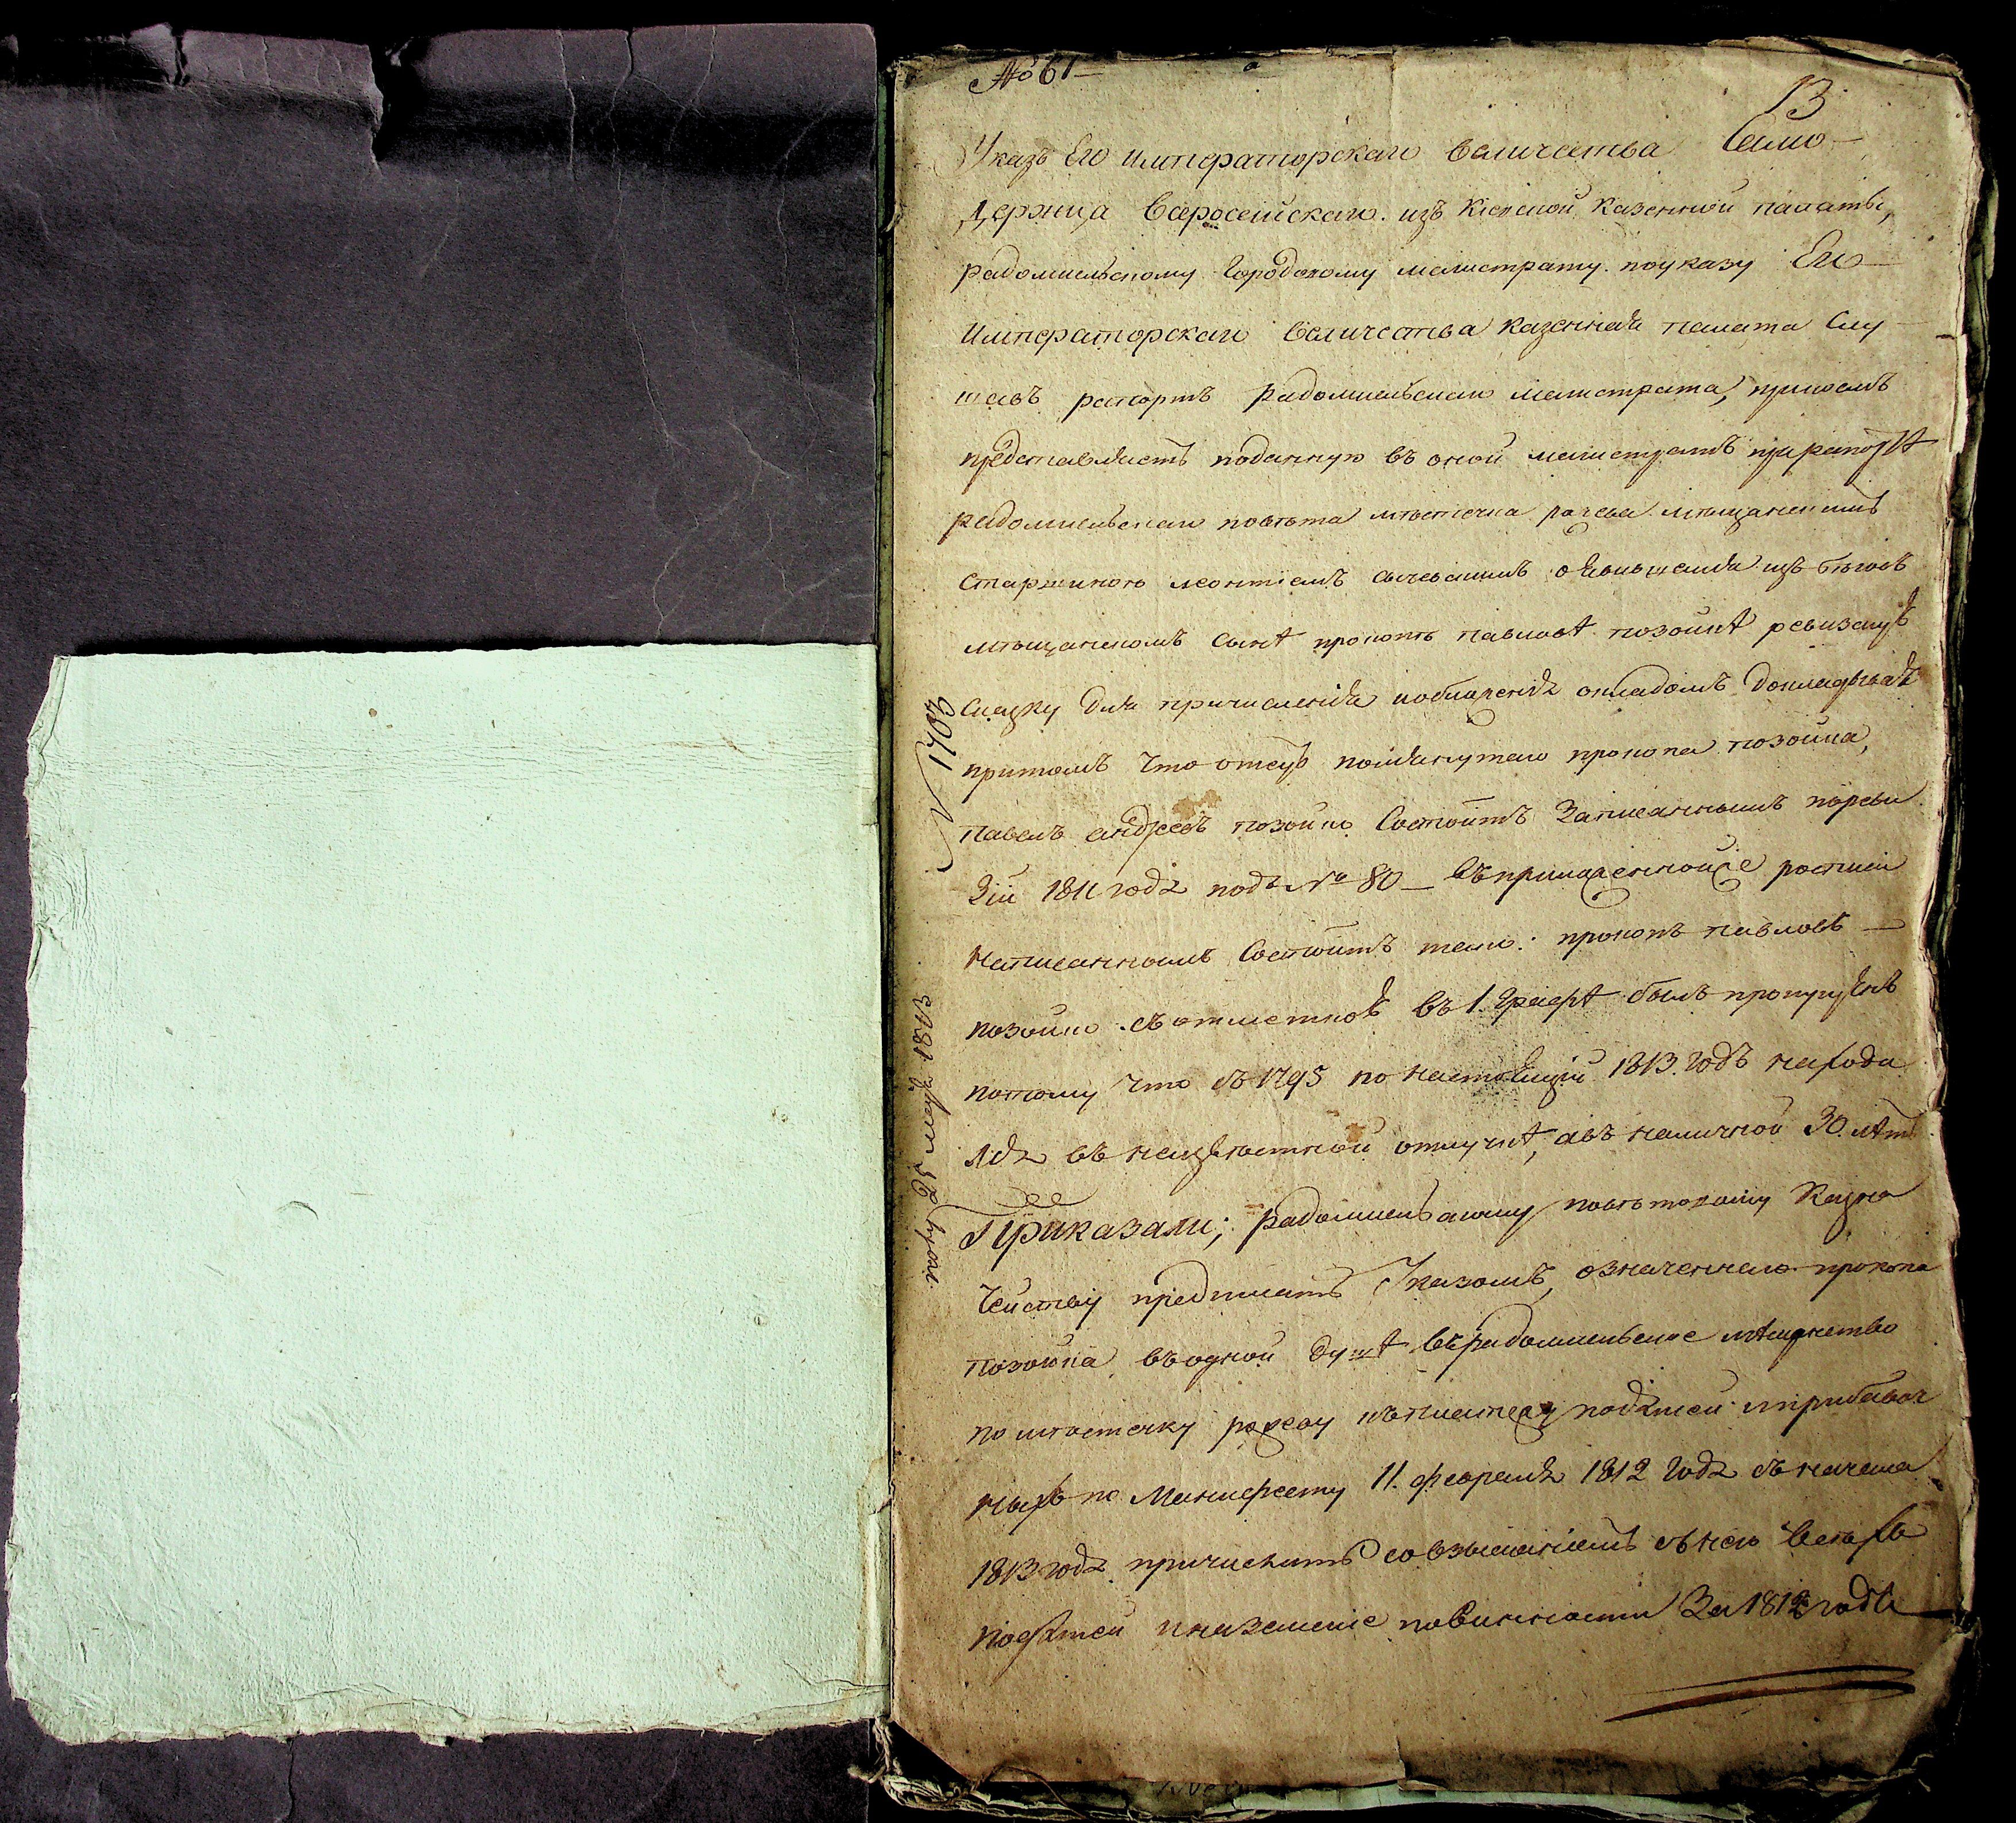 № 61
13
Указъ Его Императорскаго величества Само-
держца всеросейскаго. изъ Кіевской казенной палаты,
радомисльскому городовому магистрату. по указу Его
Императорскаго величества казенная палата слу
шавъ рапортъ радомисльскаго магистрата, при коемъ
представляетъ поданную въ оной магистратъ при рапортѣ
радомисльскаго повѣта мѣстечка мѣщанскимъ
старшиною леонтіемъ о явившемся изъ бѣговъ
мѣщанскомъ сынѣ прокопѣ павловѣ позойкѣ ревизскую
скаску для причисленія и обложенія окладомъ докладывая
притомъ что отецъ помянутаго прокопа позойка,
павелъ андреевъ позойко состоитъ записаннымъ по реви
зіи 1811 года подъ № 80 – въ приложенной же
написаннымъ состоитъ тако: прокопъ павловъ –
позойко съ отметкою въ 1. графѣ былъ пропущенъ
потому что съ 1795 по настоящій 1813. годъ находи
лся въ неизвѣстной отлучкѣ, а въ наличной 30. лѣтъ
Приказали; радомисльскому повѣтовому казна
чейству предписать указомъ, означеннаго прокопа
позойка въ одной душѣ въ радомисльское мѣщанство
по мѣстечку къ платежу податей и прибавоч
ныхъ по Манифесту 11. февраля 1812 года съ начала
1813 года причислить со взысканіемъ съ него всехъ
податей и на земские повинности За 1812 годъ
N 1703
25 1813